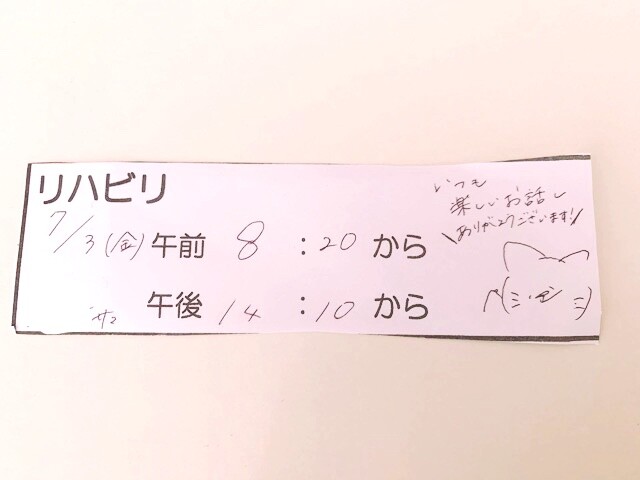 リハビリ
7/3(金) 午前 8:20から
午後 14:10から
いつも
楽しいお話し
\ありがとうございます!/